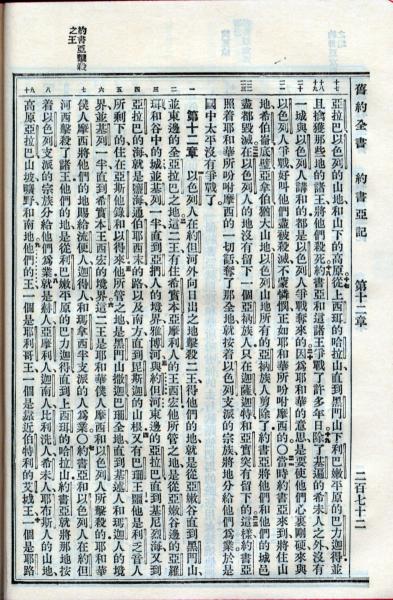 舊約全書　約書亞記　第十二章　二百七十二
亞拉巴以色列的山地和山下的高原從上西珥的哈拉山直到黑門山下利巴嫩平原的巴力迦得並
且擒獲那些地的諸王將他們殺死約書亞和這諸王爭戰了許多年日除了基遍的希未人之外沒有
一城與以色列人講和的都是以色列人爭戰奪來的因爲耶和華的意思是要使他們心裏剛硬來與
以色列人爭戰好叫他們盡被殺滅不蒙憐憫正如耶和華所吩咐摩西的○當時約書亞來到將住山
地希伯崙底璧亞拿伯猶大山地以色列山地所有的亞衲族人剪除了約書亞將他們和他們的城邑
盡都毀滅在以色列人的地沒有留下一個亞衲族人只在迦薩迦特和亞實突有留下的這樣約書亞
照着耶和華所吩咐摩西的一切話奪了那全地就按着以色列支派的宗族將地分給他們爲業於是
國中太平沒有爭戰了
第十二章　以色列人在約但河外向日出之地擊殺二王得他們的地就是從亞嫩谷直到黑門山
並東邊的全亞拉巴之地這二王有住希實本亞摩利人的王西宏他所管之地是從亞嫩谷邊的亞羅
珥和谷中的城並基列一半直到亞捫人的境界雅博河與約但河東邊的亞拉巴直到基尼烈海又到
亞拉巴的海就是鹽海通伯耶西末的路以及南方直到毘斯迦的山根又有巴珊王噩他是利乏音人
所剩下的住在亞斯他錄和以得來他所管之地是黑門山撒迦巴珊全地直到基述人和瑪迦人的境
界並基列一半直到希實本王西宏的境界這二王是耶和華僕人摩西和以色列人所擊殺的耶和華
僕人摩西將他們的地賜給流便人迦得人和瑪拿西半支派的人爲業○約書亞和以色列人在約但
河西擊殺了諸王他們的地是從利巴嫩平原的巴力迦得直到上西珥的哈拉山約書亞就將那地按
着以色列支派的宗族分給他們爲業就是赫人亞摩利人迦南人比利洗人希未人耶布斯人的山地
高原亞拉巴山坡曠野和南地他們的王一個是耶利哥王一個是靠近伯特利的艾城王一個是耶路
約書亞擊殺
之王